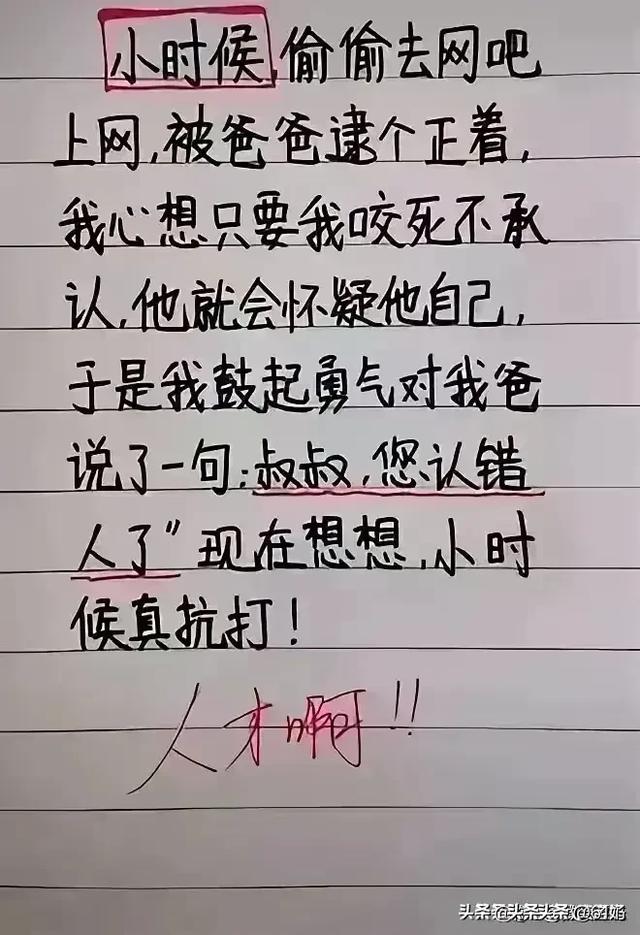 小时候,偷偷去网吧
上网,被爸爸逮个正着,
我心想只要我咬死不承
认,他就会怀疑他自己,
于是我鼓起勇气对我爸
说了一句:叔叔,您认错
人了”现在想想,小时
候真抗打!
人才啊!!